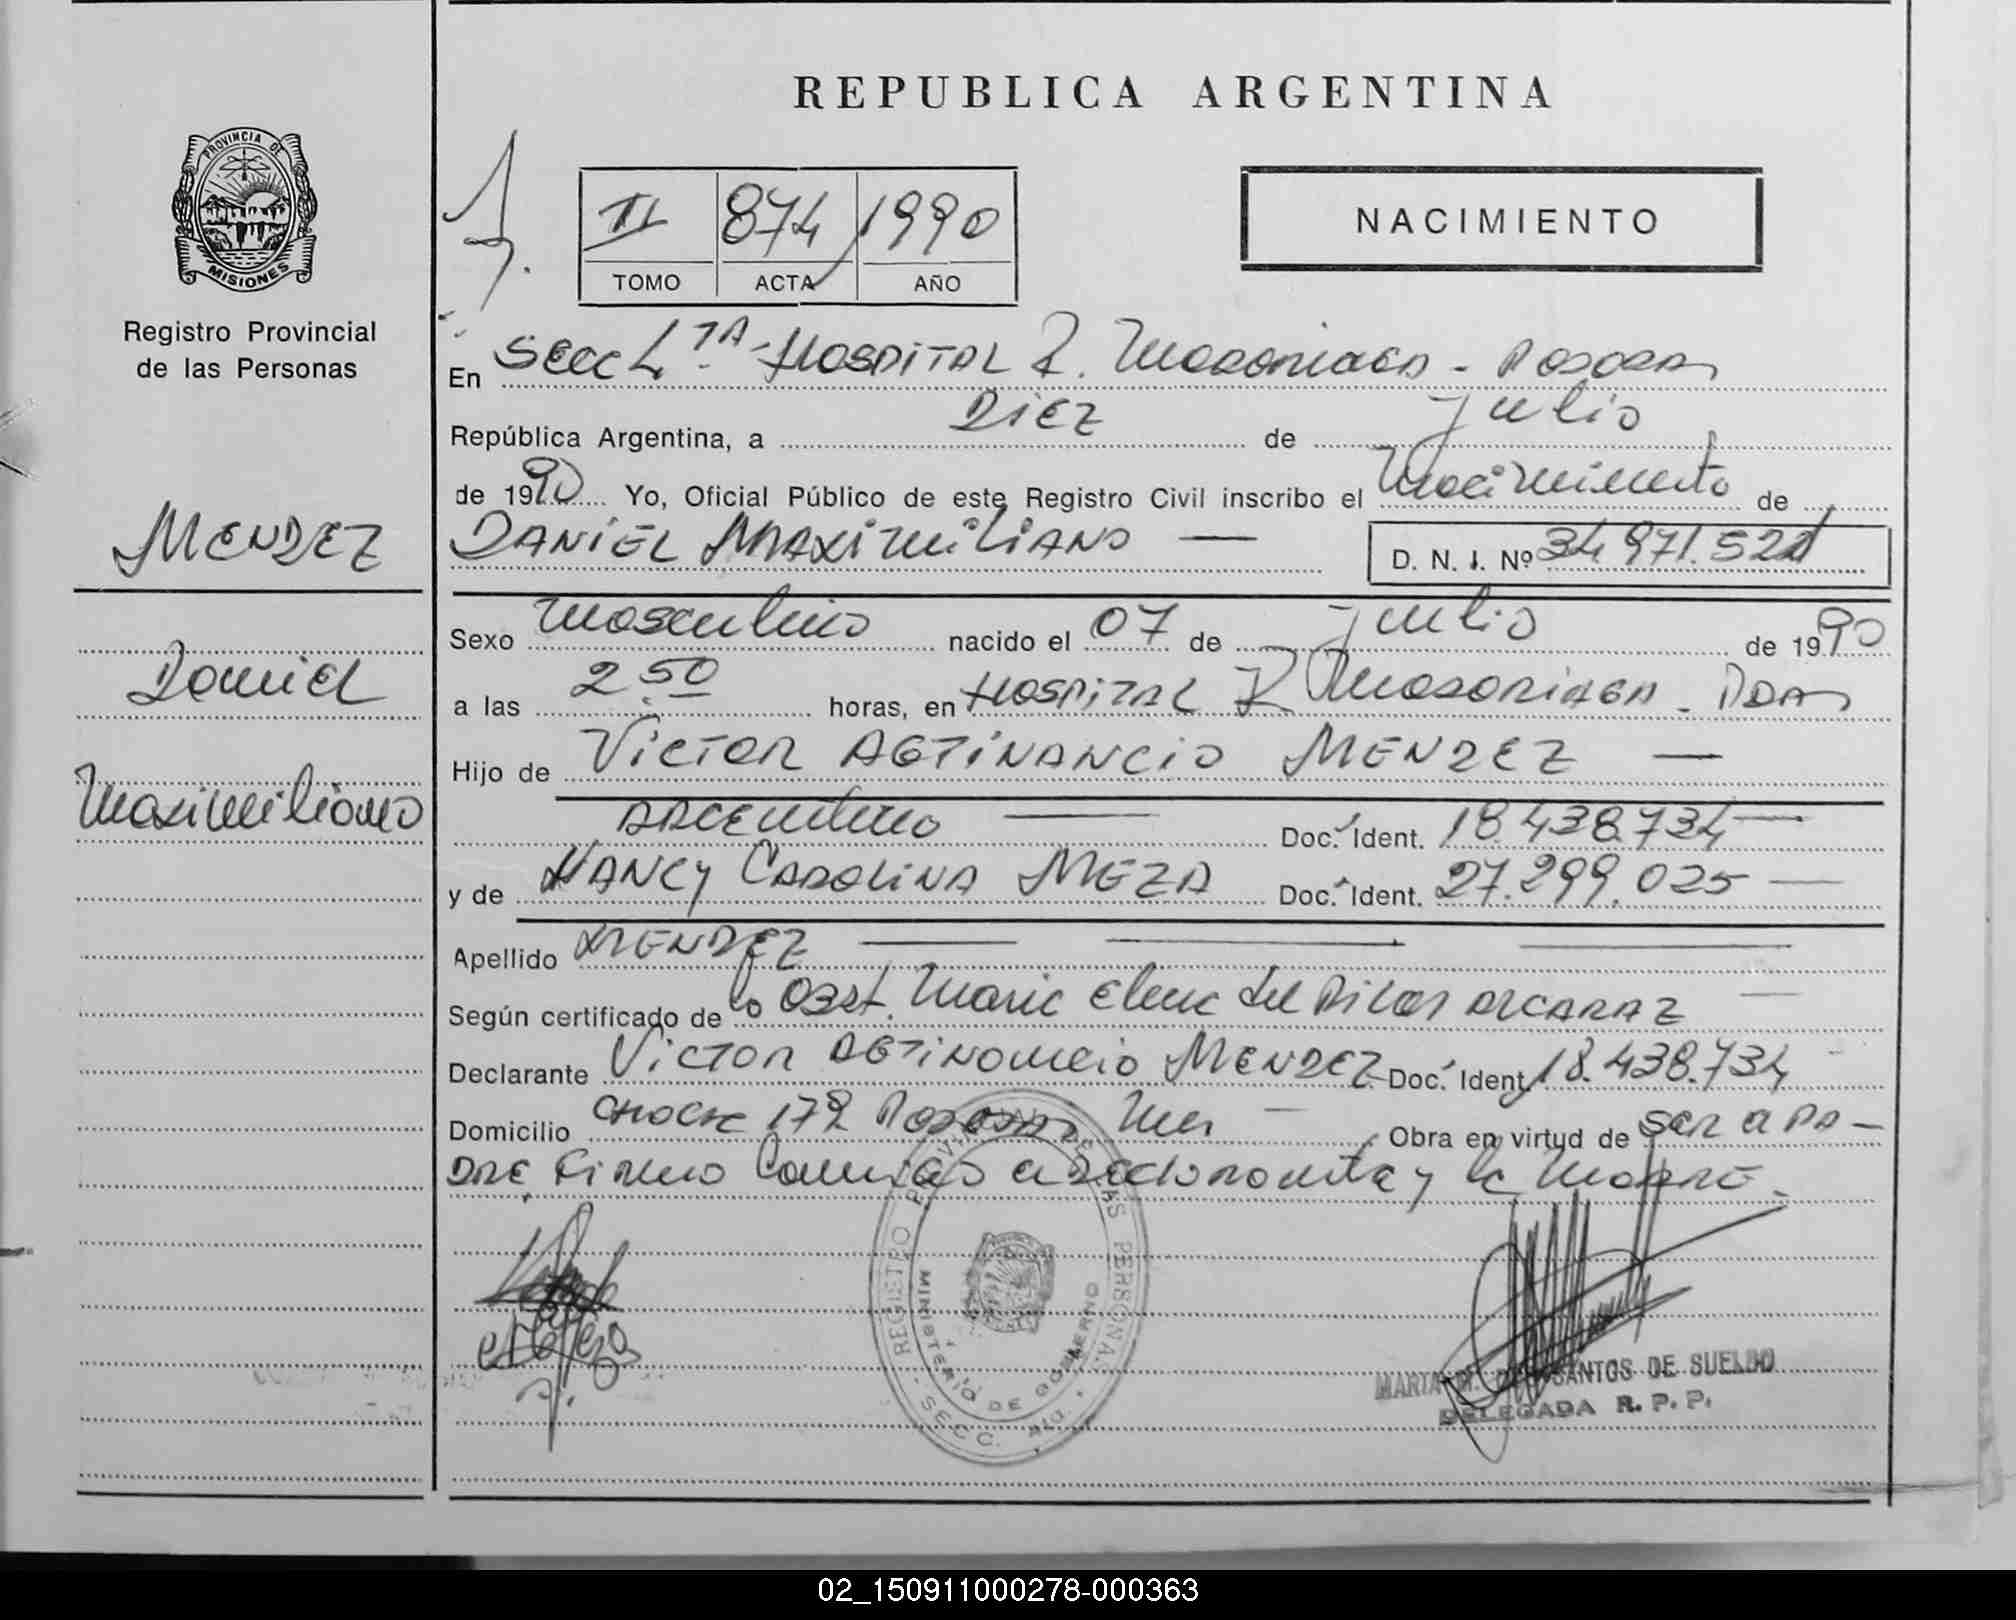 REPUBLICA ARGENTINA
PROVINCIA DE
MISIONES
Registro Provincial
de las Personas
II 874 1990
TOMO ACTA AÑO
NACIMIENTO
En Secc 4ta Hospital R. Madariaga - Posadas
República Argentina, a Diez de Julio
de 1990 Yo, Oficial Público de este Registro Civil inscribo el Nacimiento de
DANIEL MAXIMILIANO — D. N. I. Nº 34.971.521
Sexo Masculino nacido el 07 de Julio de 1990
a las 2.50 horas, en Hospital R Madariaga - Pdas
Hijo de Victor ABTINANCIO MENDEZ —
Argentino — Doc. Ident. 18.438.734 —
y de NANCY CAROLINA MEZA Doc. Ident. 27.299.025 —
Apellido MENDEZ — — —
Según certificado de la Obst. Maria Elena del Pilar ALCARAZ —
Declarante Victor MENDEZ Doc. Ident. 18.438.734
Domicilio 179 Posadas Mnes — Obra en virtud de ser a pa-
dre Firma Conmigo el declarante y la Madre.
MENDEZ
Daniel
Maximiliano
REGISTRO PROVINCIAL DE LAS PERSONAS
MINISTERIO DE GOBIERNO
SECC. 4ta.
MARIA M. DOS SANTOS DE SUELDO
DELEGADA R. P. P.
02_150911000278-000363